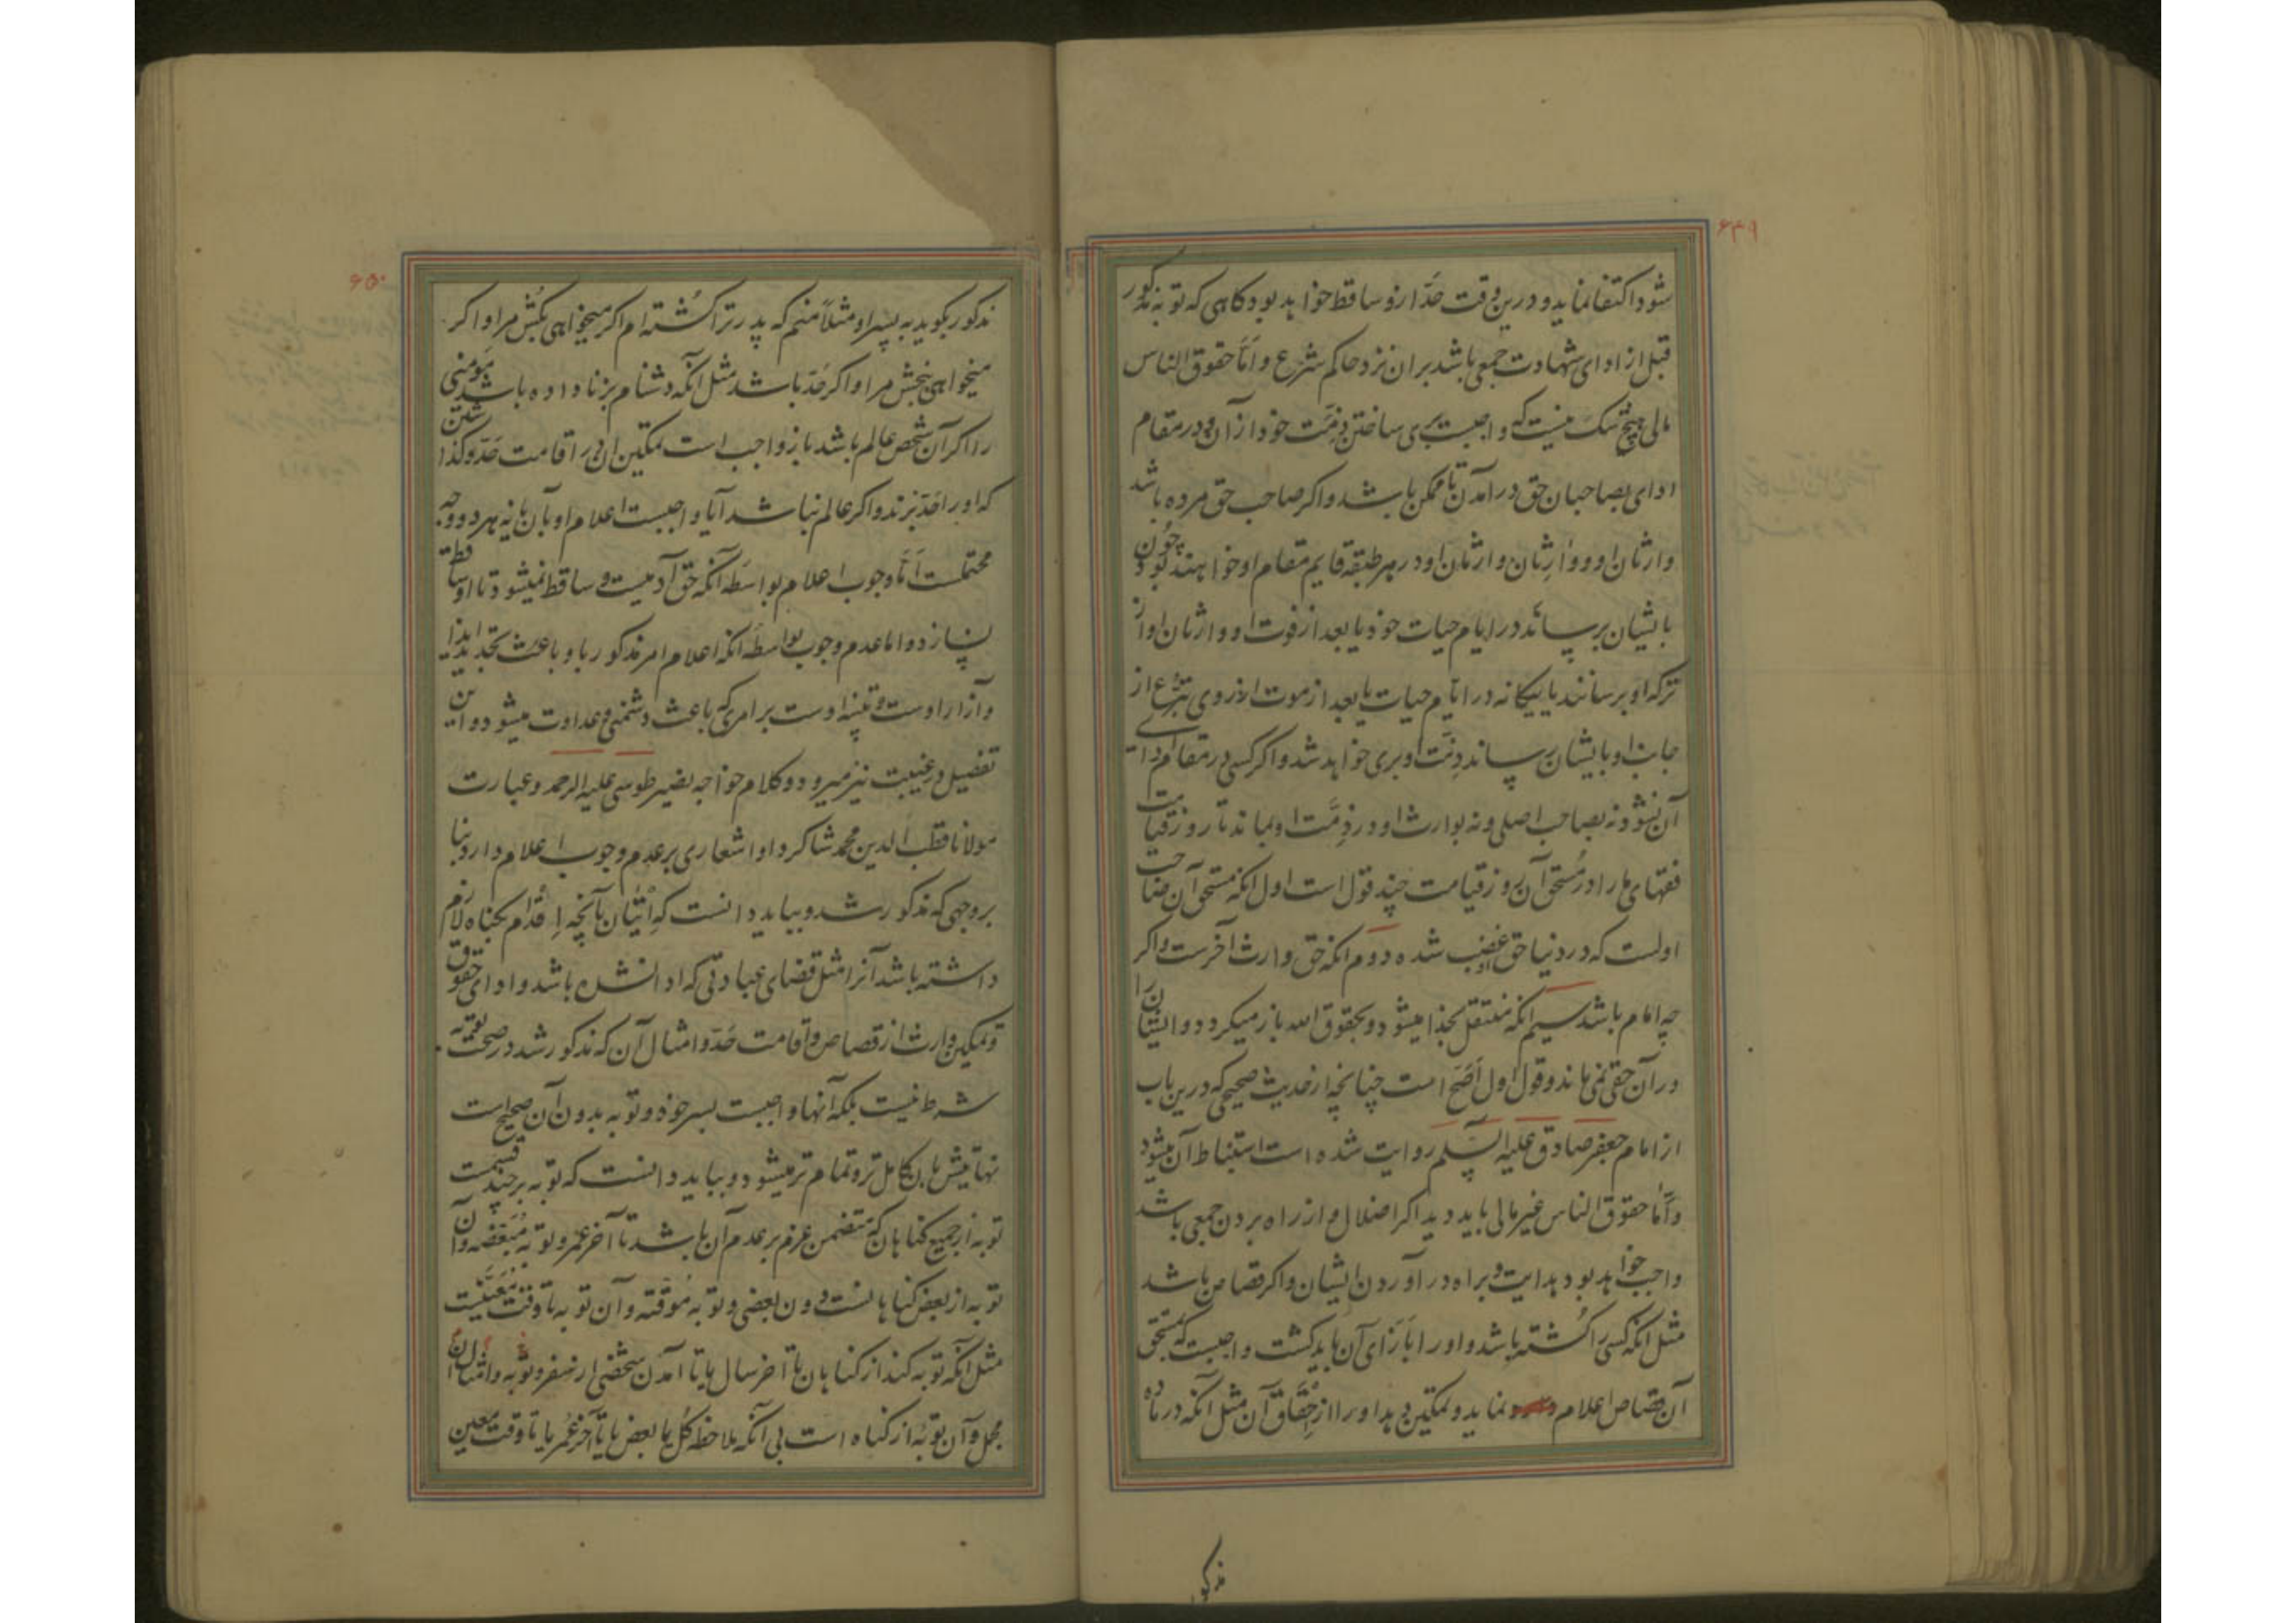 ۶۴۹
شود اکتفا نماید و درین وقت حدّ ازو ساقط خواهد بود کاهی که توبه مذکور
قبل از ادای شهادت جمعی باشد بران نزد حاکم شرع و امّا حقوق الناس
مالی هیچ شک نیست که واجبست بری ساختن ذمّت خود از آن و در مقام
ادای بصاحبان حق در آمدن تا ممکن باشد و اکر صاحب حق مرده باشد
وارثان او و وارثان وارثان او در هر طبقه قایم مقام او خواهند بود چون
بایشان برساند در ایام حیات خود یا بعد از فوت او وارثان او از
ترکه او برسانند یا بیکانه در ایام حیات یا بعد از موت از روی تبرّع از
جانب او بایشان رساند ذمّت او بری خواهد شد و اکر کسی در مقام ادای
آن نشود نه بصاحب اصلی و نه بوارث او در ذمّت او بماند تا روز قیامت
فقهای ما را در مستحق آن روز قیامت چند قول است اول انکه مستحق آن صاحب
اولست که در دنیا حق او غصب شده دوم انکه حق وارث آخرست و اکر
چه امام باشد سیم انکه منتقل بخدا میشود و بحقوق الله باز میکردد و ایشان را
در آن حقی نمی ماند و قول اول اصحّ است چنانچه از حدیث صحیحی که درین باب
از امام جعفر صادق علیه السّلم روایت شده است استنباط آن میشود
و امّا حقوق الناس غیر مالی باید دید اکر اضلال و از راه بردن جمعی باشد
واجب خواهد بود هدایت و براه در آوردن ایشان و اکر قصاص باشد
مثل انکه کسی را کشته باشد و او را بازای آن باید کشت واجبست که مستحق
آن قصاص اعلام نماید و تمکین دهد او را از احقاق آن مثل آنکه در ماده
مذکور
۶۵۰
مذکور بکوید به پسر او مثلاً منم که پدر ترا کشته ام اکر میخواهی بکش مرا و اکر
میخواهی ببخش مرا و اکر حدّ باشد مثل انکه دشنام بزنا داده باشد بمومنی
را اکر آن شخص عالم باشد باز واجب است تمکین او در اقامت حدّ و کذاشتن
که او را حدّ بزند و اکر عالم نباشد آیا واجبست اعلام او بآن یا نه هر دو وجه
محتملست امّا وجوب اعلام بواسطه آنکه حق آدمیست و ساقط نمیشود تا او ساقط
نسازد و اما عدم وجوب بواسطه انکه اعلام امر مذکور باو باعث تجدید ایذا
و آزار اوست و تنبیه اوست بر امری که باعث دشمنی و عداوت میشود و این
تفصیل در غیبت نیز میرود و کلام خواجه نصیر طوسی علیه الرحمه و عبارت
مولانا قطب الدین محمد شاکرد او اشعاری بر عدم وجوب اعلام دارد بنا
بر وجهی که مذکور شد و بباید دانست که اتیان بآنچه اقدام بکناه لازم
داشته باشد آنرا مثل قضای عبادتی که ادا نشده باشد و ادای حقوق
و تمکین وارث از قصاص و اقامت حدّ و امثال آن که مذکور شد در صحت توبه
شرط نیست بلکه آنها واجبست بسر خود و توبه بدون آن صحیح است
نهایتش باین کامل تر و تمام تر میشود و بباید دانست که توبه بر چند قسمت
توبه از جمیع کناهان که متضمن عزم بر عدم آن باشد تا آخر عمر و توبه مبعضه و آن
توبه از بعض کناهانست دون بعضی و توبه موقته و آن توبه تا وقت معینیست
مثل آنکه توبه کند از کناهان تا آخر سال یا تا آمدن شخصی از سفر و توبه و امثال آن
مجمل و آن توبه از کناه است بی آنکه ملاحظه کل یا بعض یا تا آخر عمر یا تا وقت معین